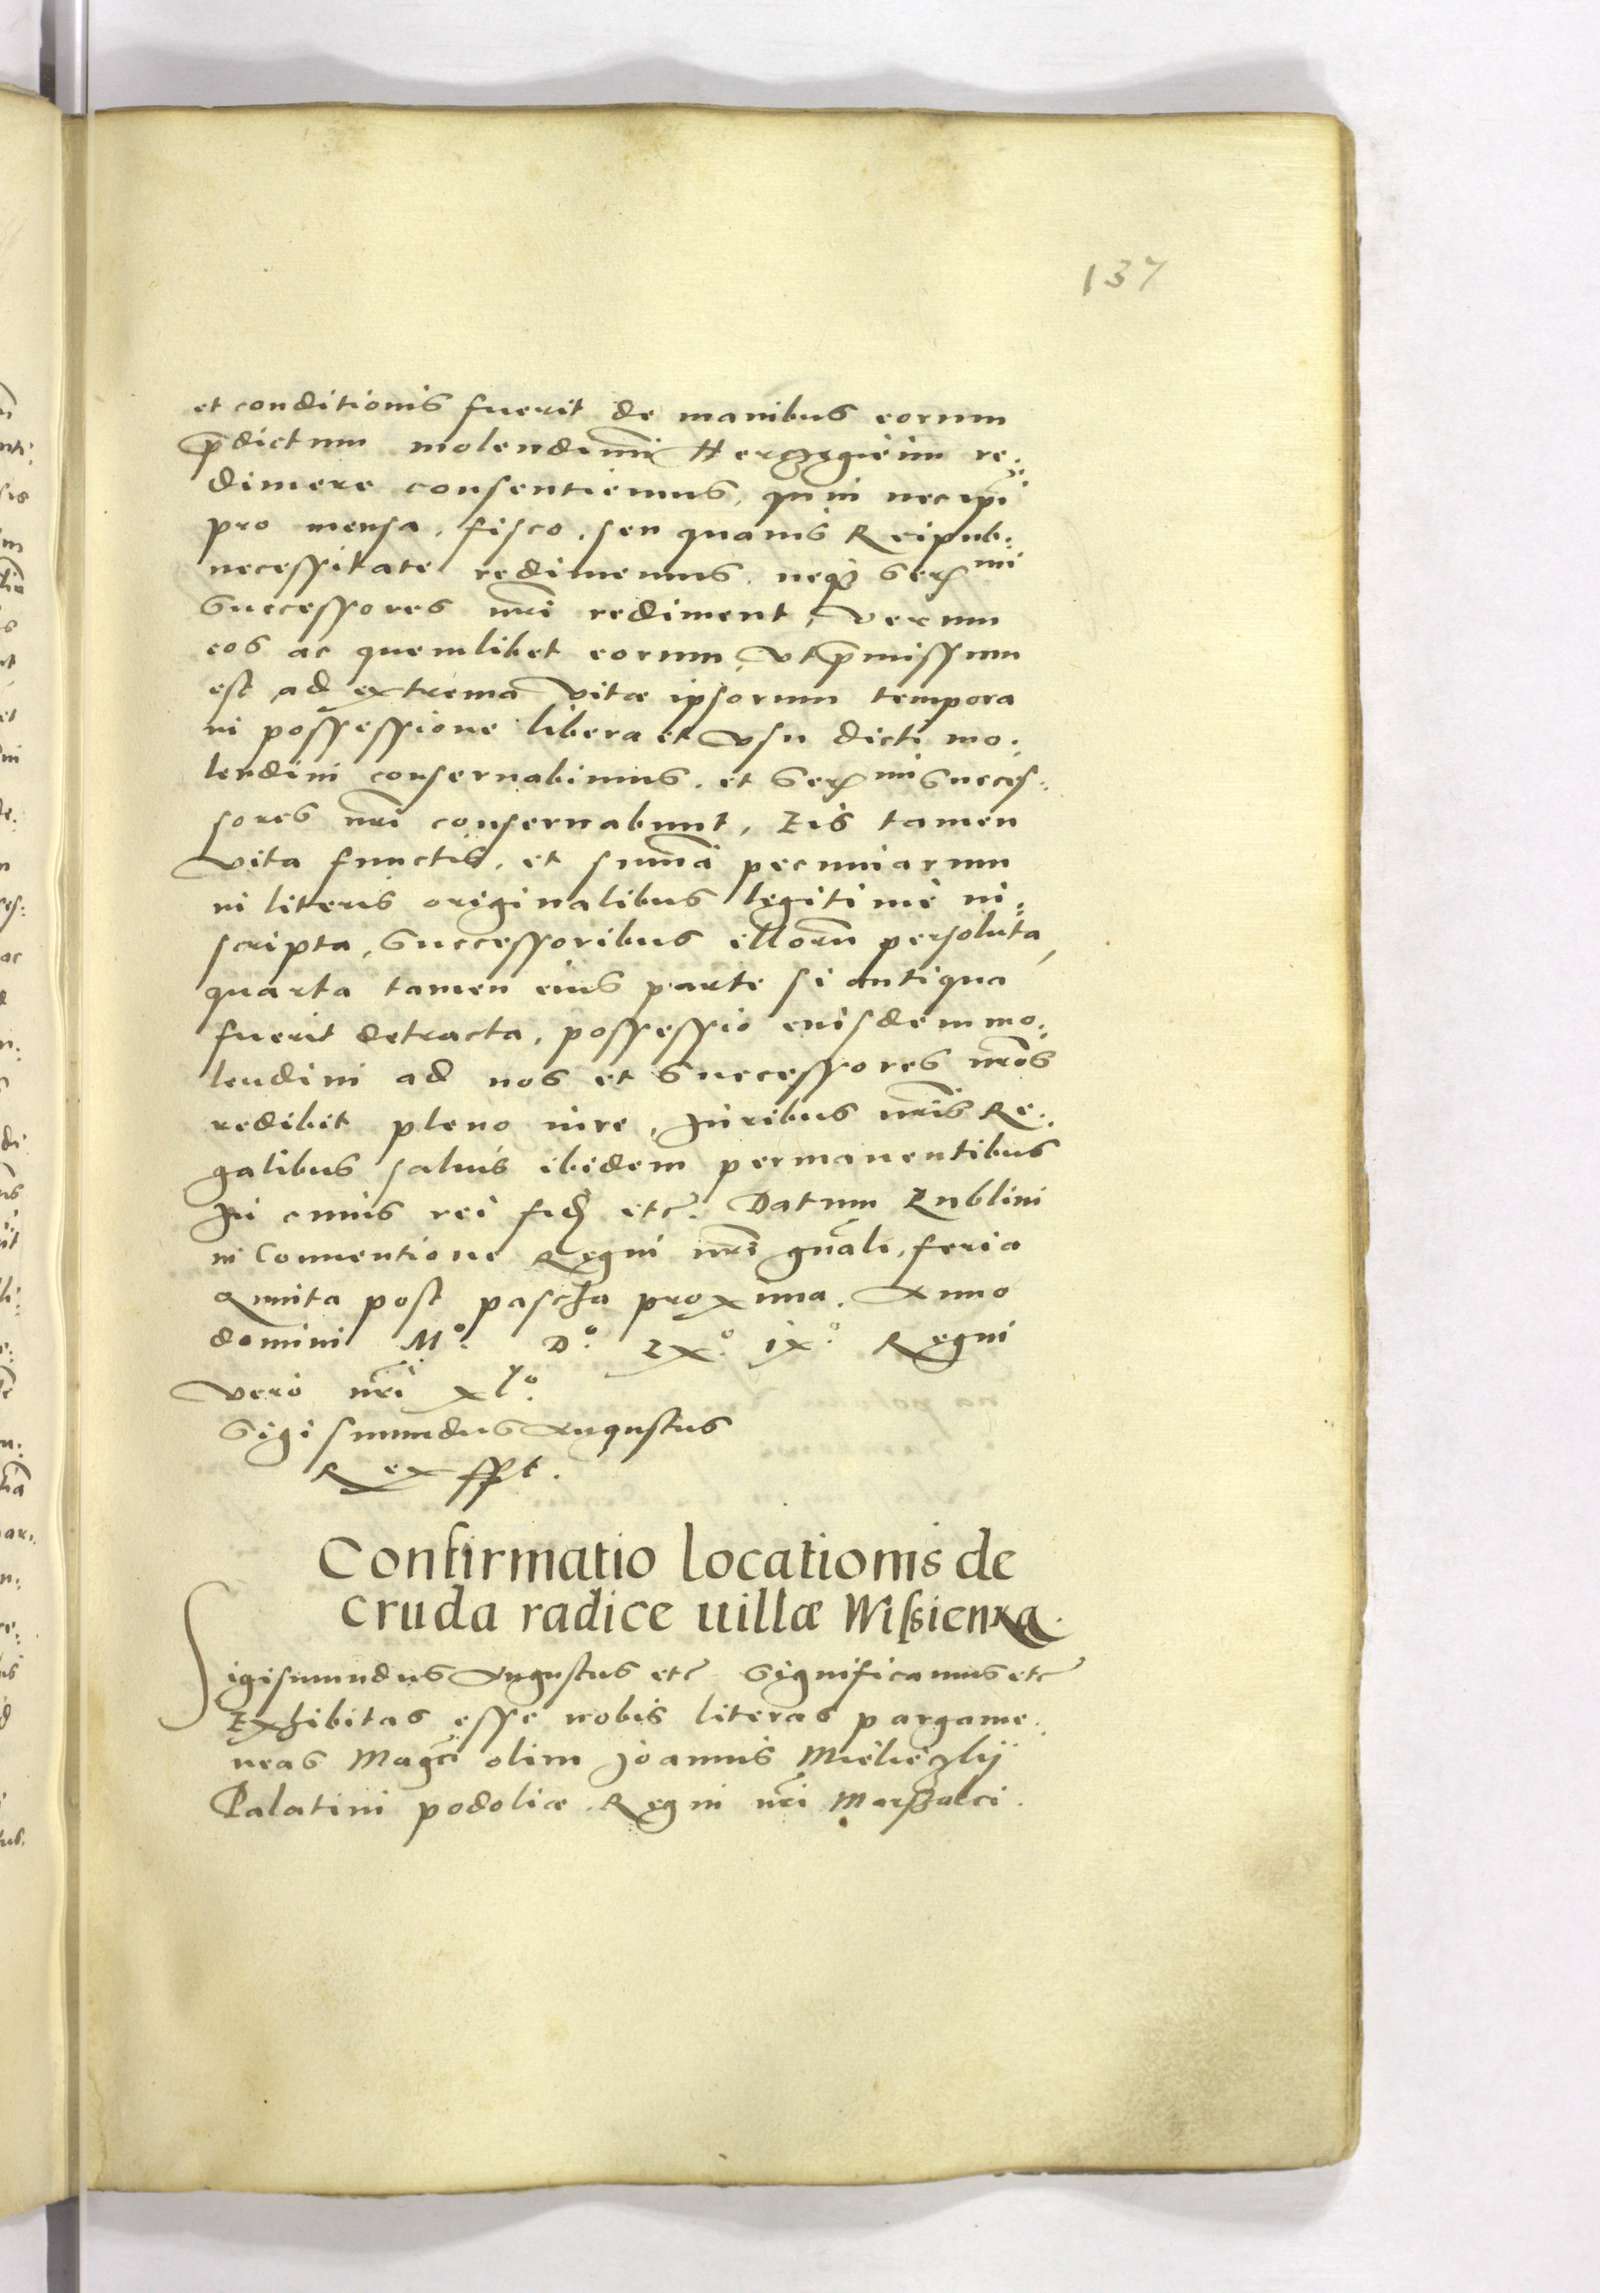 137
et conditionis fuerit de manibus eorum
p̄dictum molendinū Herczegiem re:
dimere consentiemus, quin nec ip̄i
pro mensa, fisco, seu quavis Reipub:
necessitate redimemus, neq3 Ser mi
Successores nr̄i rediment, verum
eos ac quemlibet eorum, vt p̄missum
est ad extrema vitæ ipsorum tempora
in possessione libera et vsu dicti mo:
lendini conseruabimus, et Ser mi Succes:
sores nr̄i conseruabunt, Eis tamen
vita functis, et sum̄a pecuniarum
in literis originalibus legitimè in:
scripta, Successoribus illorū persoluta,
quarta tamen eius parte si antiqua
fuerit detracta, possessio eiusdem mo:
lendini ad nos et Successores nr̄os
redibit pleno iure, Iuribus nr̄is Re:
galibus saluis ibidem permanentibus
In cuius rei fid etc. Datum Lublini
in Conuentione Regni nr̄i gn̄ali, feria
Quinta post pascha proxima. Anno
domini Mº. Dº. LXº. ixº. Regni
vero nr̄i xlº.
Sigismundus Augustus
Rex sspt.
Confirmatio locationis de
cruda radice uillæ Wissienka.
Sigismundus Augustus etc Significamus etc
Exhibitas esse nobis literas pargame:
neas Magci olim Joannis Mielieczky
Palatini podoliæ. Regni nr̄i Marszalci.